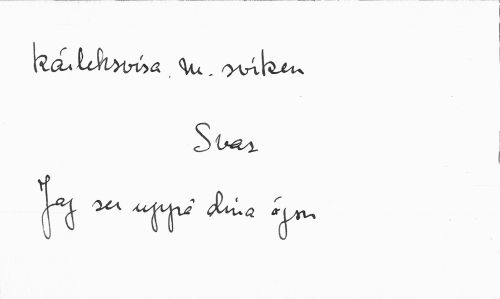 kärleksvisa, m. sviken
Svar
Jag ser uppå dina ögon